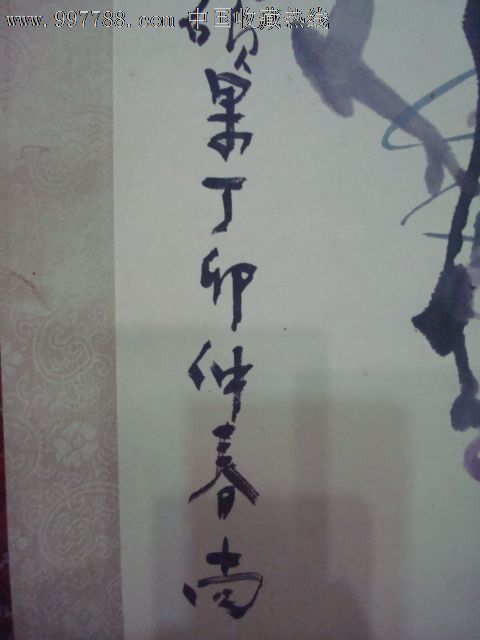 www.997788.com 中国收藏热线
硕果丁卯仲春尚